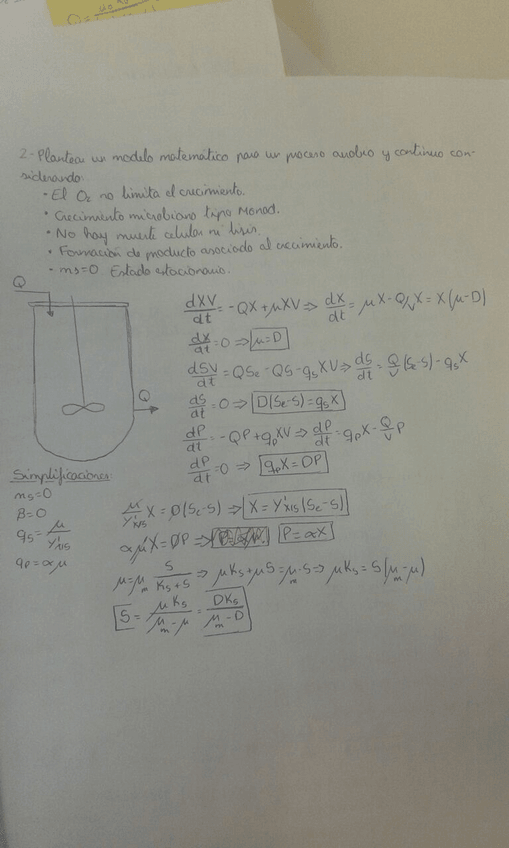 2- Plantear un modelo matemático para un proceso aerobio y continuo con-
siderando:
- El O₂ no limita el crecimiento.
• Crecimiento microbiano tipo Monod.
• No hay muerte celular ni lisis.
• Formación de producto asociado al crecimiento.
• ms=0 Estado estacionario.
Q
dXV/dt = -QX + μXV ⇒ dX/dt = μX - Q/V X = X(μ-D)
dX/dt = 0 ⇒ μ=D
dSV/dt = QSe - QS - qsXV ⇒ dS/dt = Q/V (Se-S) - qsX
Q
dS/dt = 0 ⇒ D(Se-S) = qsX
dP/dt = -QP + qpXV ⇒ dP/dt = qpX - Q/V P
dP/dt = 0 ⇒ qpX = DP
Simplificaciones:
ms=0
β=0
qs = μ/Y'x/s
qp = αμ
μ/Y'x/s X = D(Se-S) ⇒ X = Y'x/s (Se-S)
αμX = DP ⇒ P = αX
μ = μm S/(Ks+S) ⇒ μKs + μS = μm·S ⇒ μKs = S(μm-μ)
S = μKs/(μm-μ) = DKs/(μm-D)